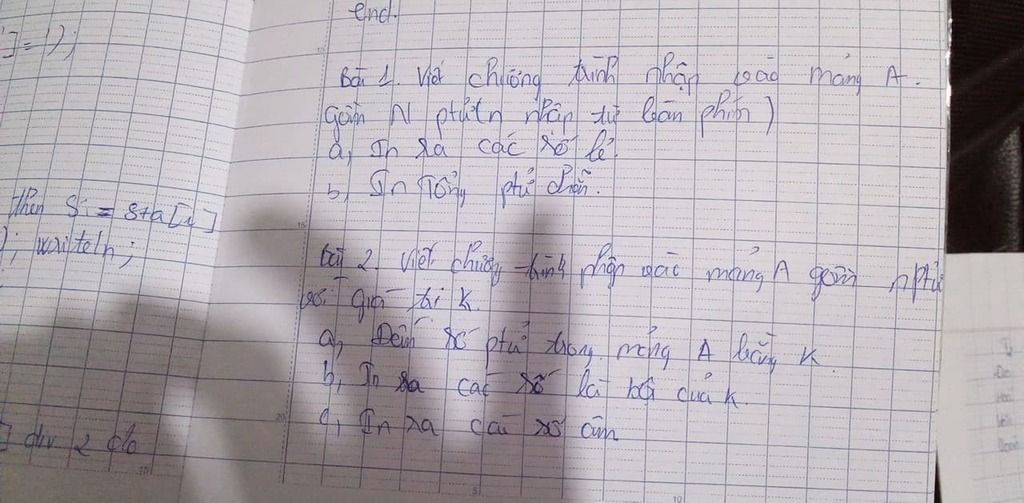 ]=1);
then S:= S+a[i]
); writeln;
] div 2
end.
Bài 1. Viết chương trình nhập vào mảng A.
gồm N ptử(n nhập từ bàn phím)
a, In ra các số lẻ.
b, In Tổng ptử chẵn.
Bài 2. Viết chương trình nhập vào mảng A gồm n ptử
và giá trị K.
a, Đếm số ptử trong mảng A bằng K
b, In ra các số là bội của K.
c, In ra các số âm